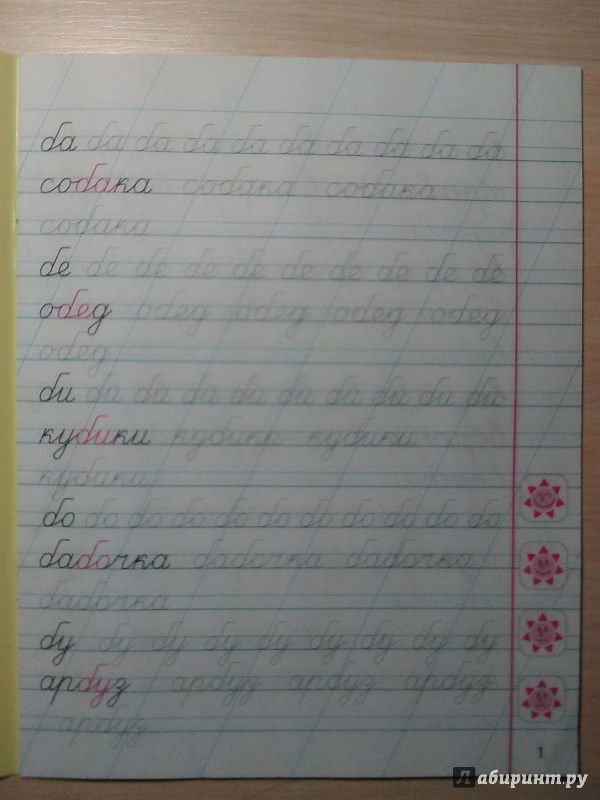 ба ба ба ба ба ба ба ба ба ба
собака собака собака
собака
бе бе бе бе бе бе бе бе бе бе
обед обед обед обед обед
обед
би би би би би би би би би би
кубики кубики кубики
кубики
бо бо бо бо бо бо бо бо бо бо бо
бабочка бабочка бабочка
бабочка
бу бу бу бу бу бу бу бу бу
арбуз арбуз арбуз арбуз
арбуз
1
Лабиринт.ру